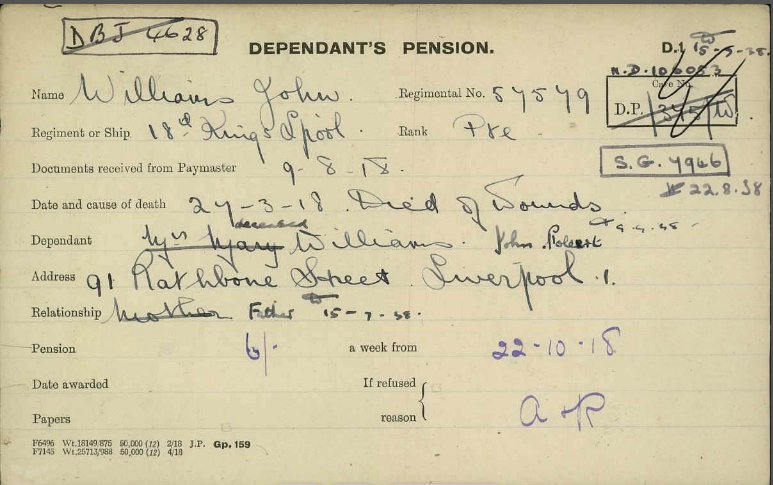 DBJ 4628
DEPENDANT'S PENSION.
D.1 15-7-38.
M.D. 106053
Name Williams John. Regimental No. 57579
Case No.
D.P. 345 W
Regiment or Ship 18th Kings Lpool. Rank Pte
Documents received from Paymaster 9-8-18.
S.G. 7946
22.8.38
Date and cause of death 27-3-18. Died of Wounds
deceased
Dependant Mrs Mary Williams. John Robert
Address 91 Rathbone Street Liverpool.1.
Relationship Mother Father 15-7-38.
Pension 6/- a week from 22-10-18
Date awarded If refused
Papers reason A & R
F6496 Wt.18149/875 50,000 (12) 2/18 J.P. Gp. 159
F7145 Wt.25713/988 50,000 (12) 4/18